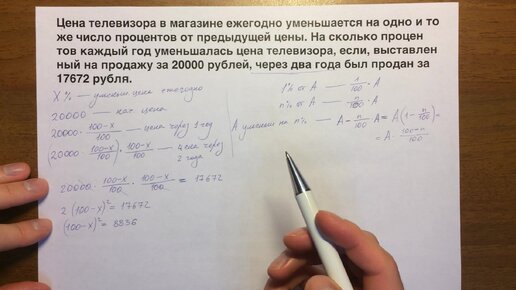 Цена телевизора в магазине ежегодно уменьшается на одно и то
же число процентов от предыдущей цены. На сколько процен
тов каждый год уменьшалась цена телевизора, если, выставлен
ный на продажу за 20000 рублей, через два года был продан за
17672 рубля.
X % — уменьш. цена ежегодно
20000 — нач. цена
20000 · (100-x)/100 — цена через 1 год
(20000 · (100-x)/100) · (100-x)/100 — цена через
2 года
20000 · (100-x)/100 · (100-x)/100 = 17672
2 (100-x)² = 17672
(100-x)² = 8836
1% от A — 1/100 · A
n% от A — n/100 · A
A уменьш на n% — A - n/100 · A = A(1 - n/100) =
= A · (100-n)/100